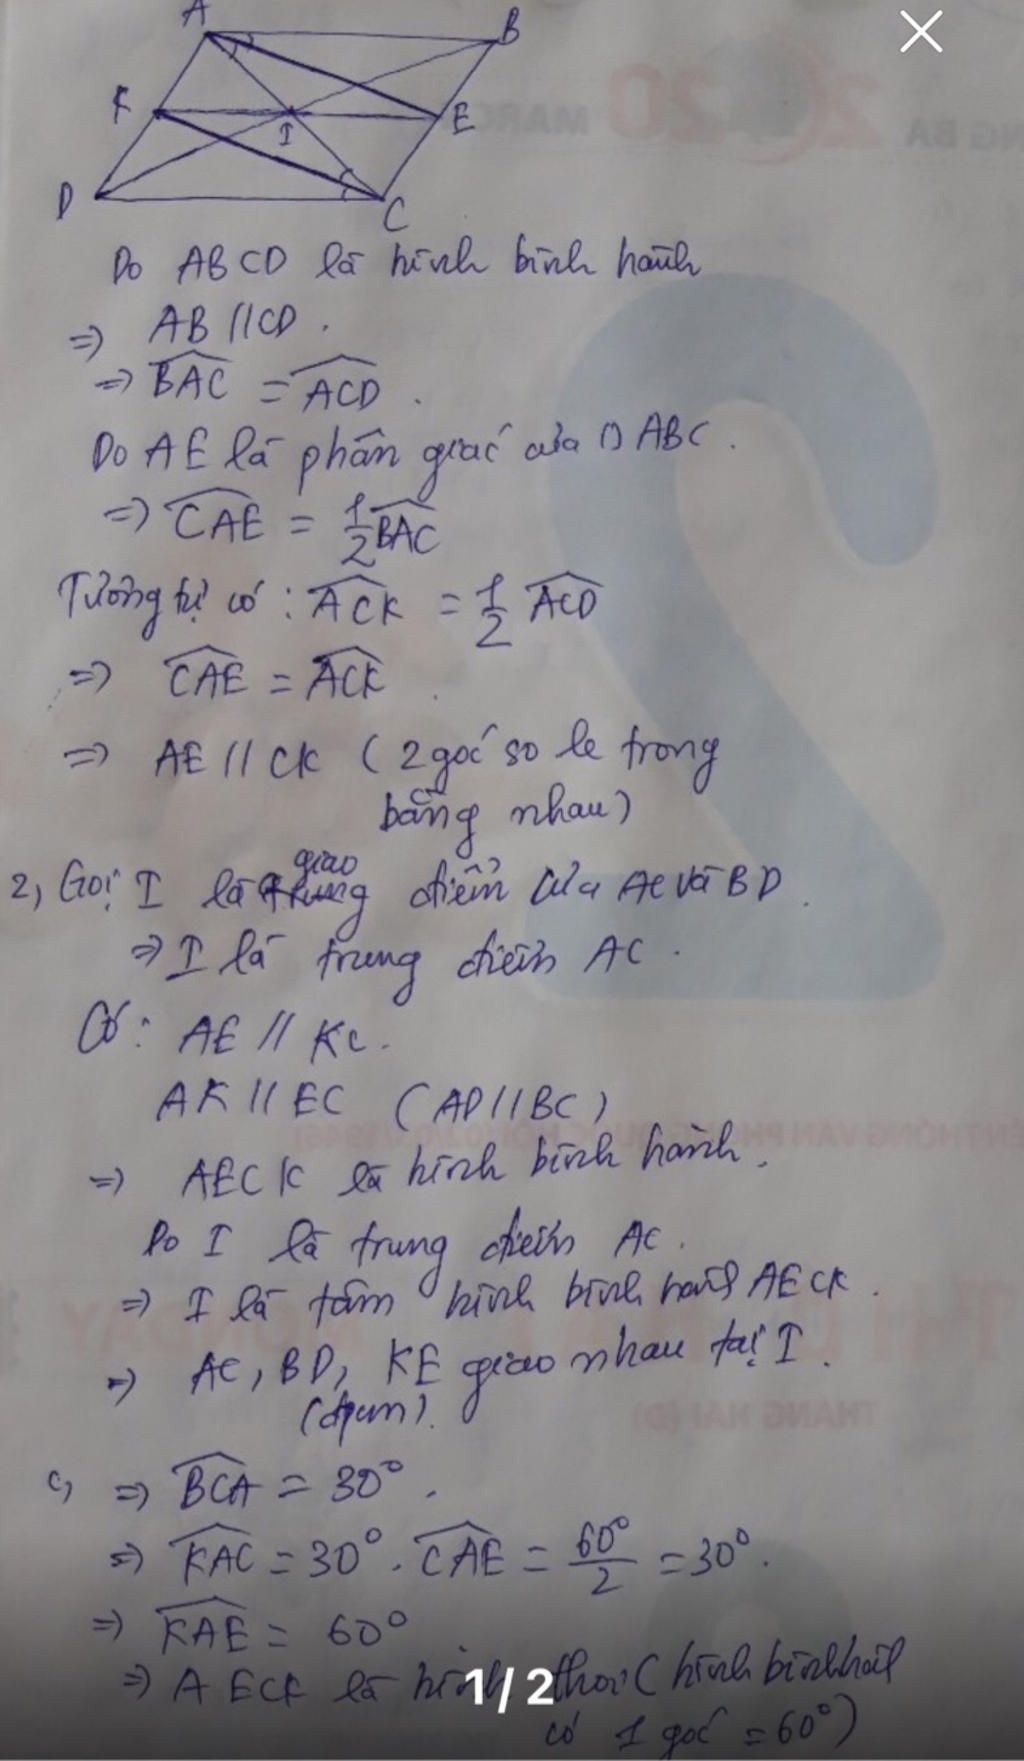 A
B
K
E
I
D
C
Do ABCD là hình bình hành
=> AB // CD .
=> BAC = ACD .
Do AE là phân giác của ABC .
=> CAE = 1/2 BAC
Tương tự có : ACK = 1/2 ACD
=> CAE = ACK
=> AE // CK ( 2 góc so le trong
bằng nhau )
giao
2, Gọi I là điểm của AC và BD .
=> I là trung điểm AC .
Có : AE // KC .
AK // EC ( AD // BC )
=> AECK là hình bình hành .
Do I là trung điểm AC .
=> I là tâm hình bình hành AECK .
=> AC , BD , KE giao nhau tại I .
(đpcm) .
c, => BCA = 30° .
=> KAC = 30° . CAE = 60°/2 = 30° .
=> KAE = 60°
=> AECK là hình thoi ( hình bình hành
có 1 góc = 60° )
1/2
20
MARC
NG BA
THANG HAI (D)